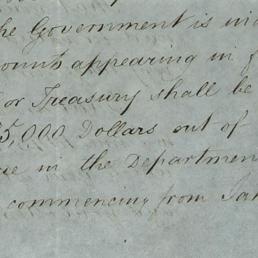 he Government is in
ounts appearing in
or Treasury shall be
5,000 Dollars out of
ue in the Departmen
commencing from Ja